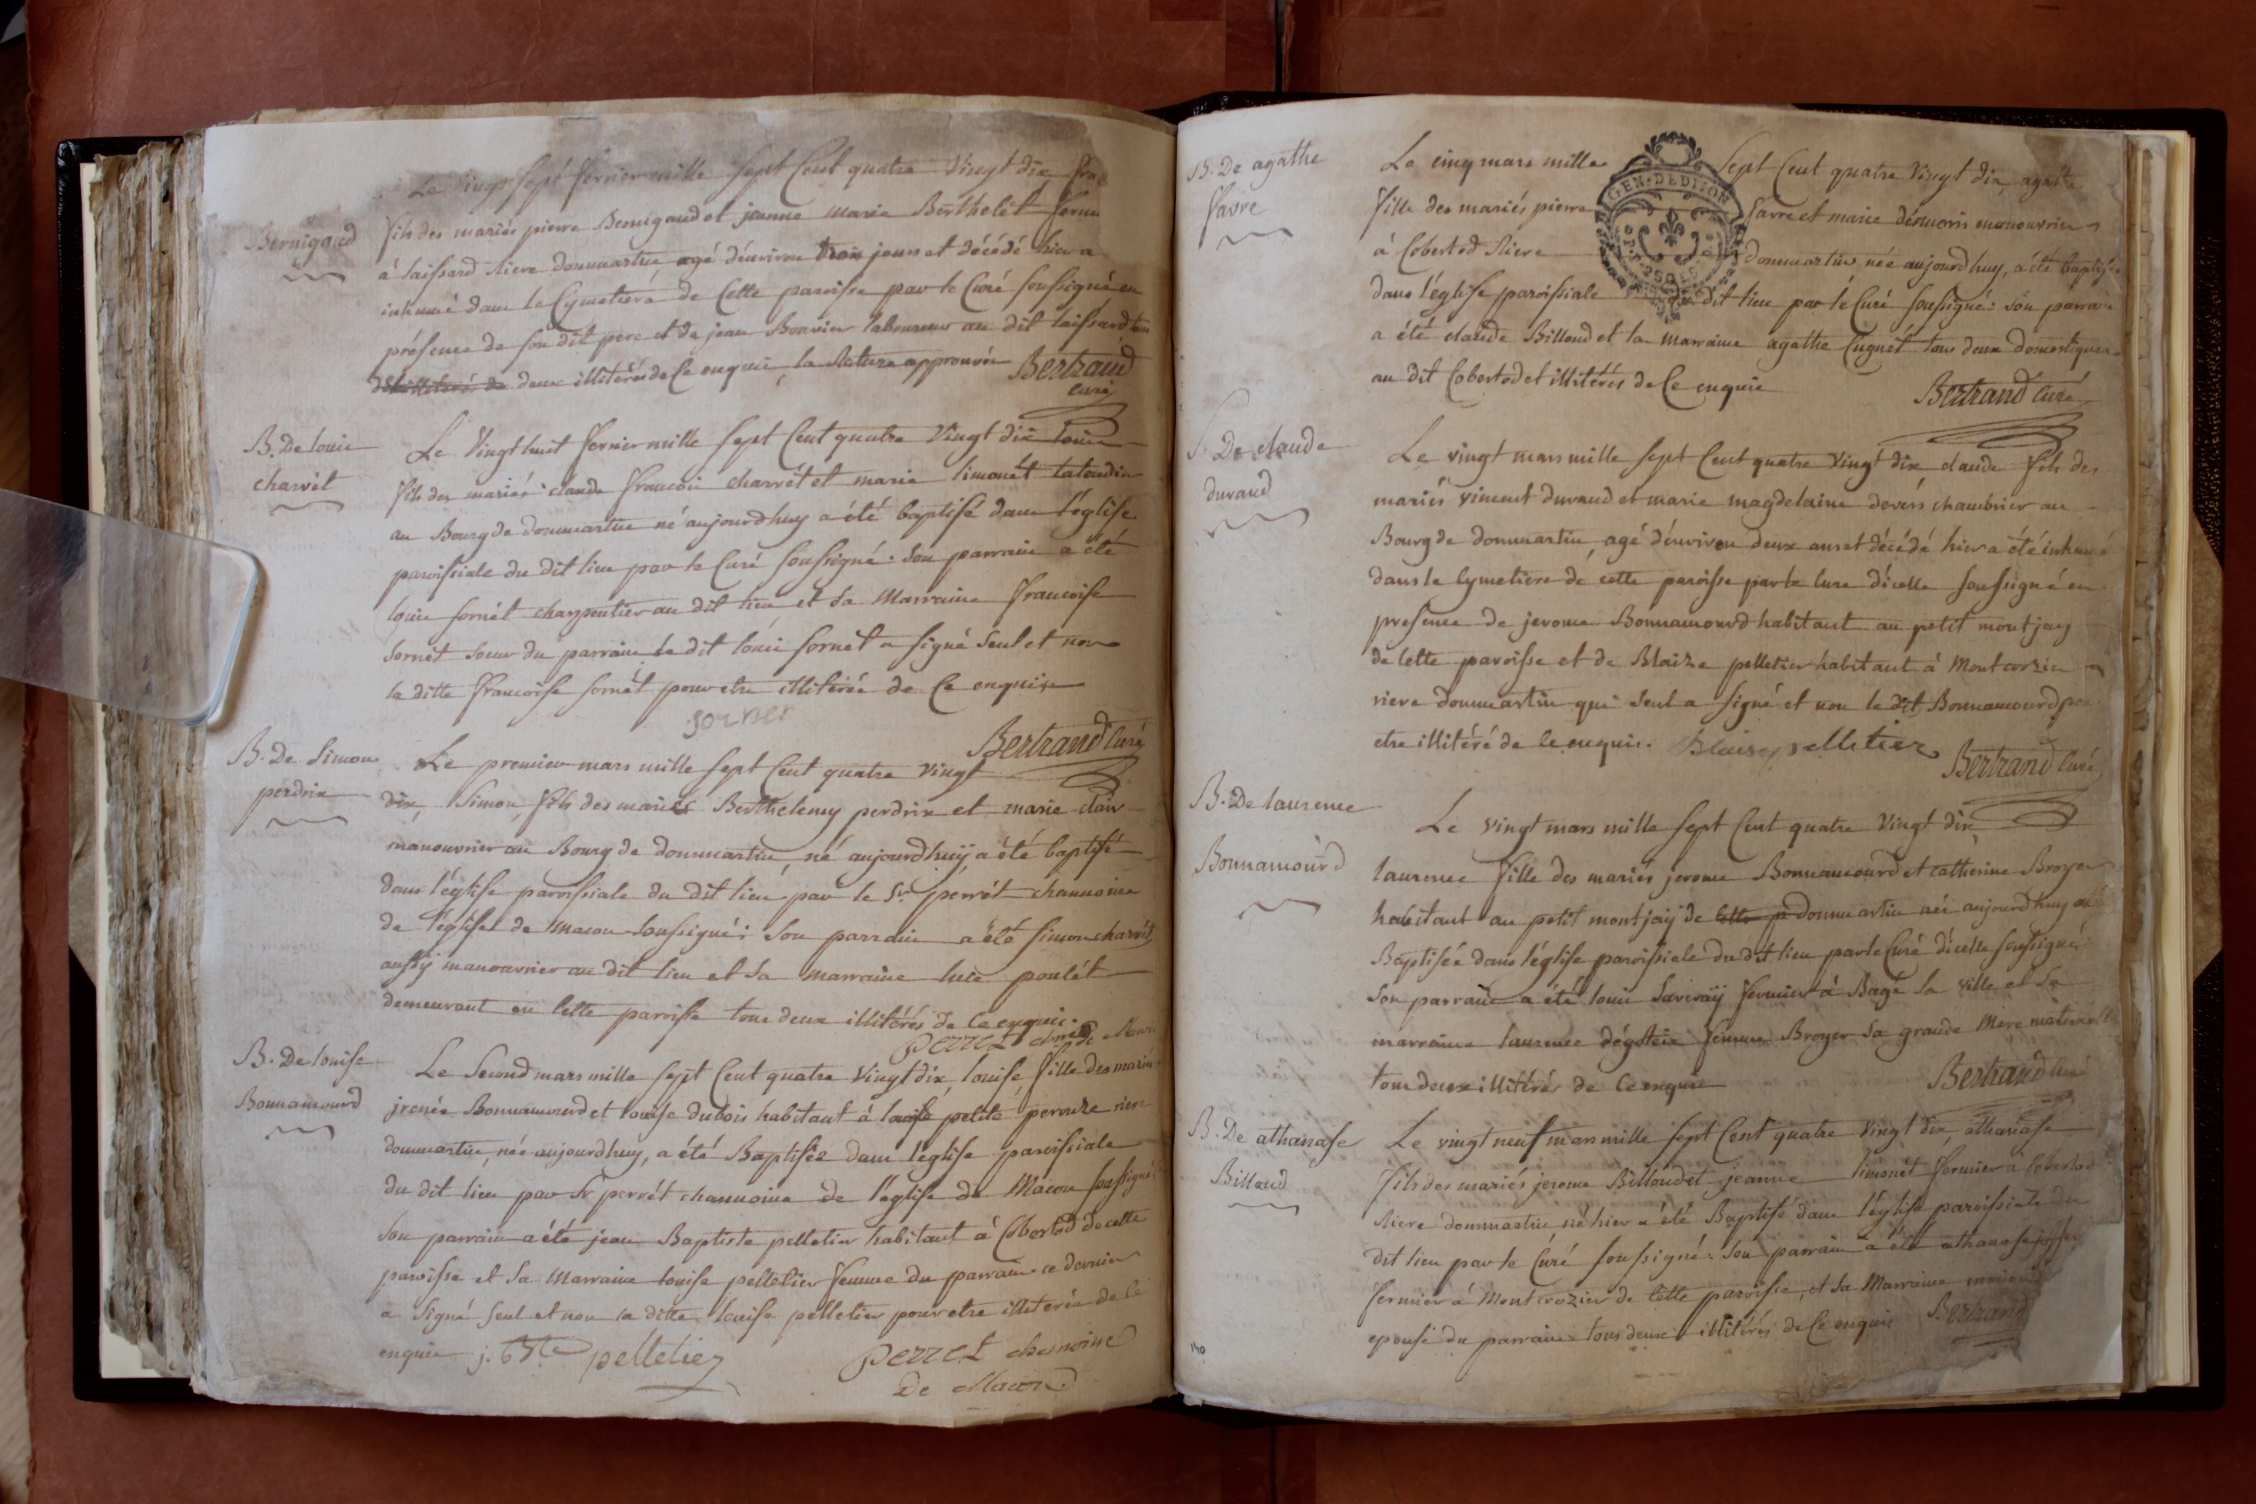 Le vingt sept fevrier mille sept Cent quatre vingt dix
Bernigaud
fils des mariés pierre Bernigaud et jeanne marie Berthelet
à laissard Riere dommartin agé d'environ trois jours et décédé hier a
inhumé dans le Cymetiere de Cette paroisse par le Curé soussigné en
présence de son dit pere et de jean Bouvier laboureur au dit laissard
deux illiterés de Ce enquis, la Rature approuvée Bertrand
curé
B. De louis
charvet
Le Vingt huit fevrier mille sept Cent quatre Vingt dix louis
fils des mariés claude francois charvét et marie simonét
au Bourg de dommartin né aujourdhuy a été baptisé dans l'église
paroissiale du dit lieu par le Curé soussigné: son parrain a été
louis sornét charpentier au dit lieu et sa Marraine francoise
sornét soeur du parrain le dit louis sornét a signé seul et non
la ditte francoise sornét pour etre illiterée de Ce enquise
sornet
Bertrand Curé
B. De Simon
perdrix
Le premier mars mille sept Cent quatre vingt
dix, Simon, fils des mariés Berthelemy perdrix et marie clair
manouvrier au Bourg de dommartin, né aujourdhuÿ a été baptisé
dans l'église paroissiale du dit lieu par le Sr perrét channoine
de l'église de Macon soussigné: son parrain a été simon charvét
aussÿ manouvrier au dit lieu et sa marraine poulét
demeurant en Cette paroisse tous deux illitérés de Ce enquis.
perret
B. De louise
Bonnamourd
Le Second mars mille sept Cent quatre Vingt dix, louise fille des mariés
jrenée Bonnamourd et louise dubois habitant à petite perouze riere
dommartin, née aujourdhuy, a été Baptisée dans l'église paroissiale
du dit lieu par Sr perrét channoine de l'église de Macon soussigné:
son parrain a été jean Baptiste pelletier habitant à Cobertod de cette
paroisse et sa Marraine louise pelletier femme du parrain ce dernier
a signé seul et non la ditte louise pelletier pour etre illiterée de Ce
enquise j. bte pelletier perret chanoine
De Macon
B. De agathe
favre
Le cinq mars mille sept Cent quatre Vingt dix agathe
GEN. DE DIJON
fille des mariés pierre favre et marie manouvrier
à Cobertod Riere dommartin née aujourdhuy, a été baptisée
dans l'église paroissiale du dit lieu par le Curé soussigné: son parrain
a été claude Billoud et la marraine agathe Cugnét tous deux domestiques
au dit Cobertod et illitérés de Ce enquis Bertrand Curé
De claude
durand
Le vingt mars mille sept Cent quatre vingt dix claude fils des
mariés vincent durand et marie magdelaine devers chambrier au
Bourg de dommartin, agé d'environ deux ans et décédé hier a été inhumé
dans le Cymetiere de cette paroisse par le Curé d'icelle soussigné en
presence de jerome Bonnamourd habitant au petit montjay
de Cette paroisse et de Blaize pelletier habitant à Montcrozier
riere dommartin qui seul a signé et non le dit Bonnamourd pour
etre illitéré de Ce enquis. Blaise pelletier
Bertrand Curé
B. De laurence
Bonnamourd
Le vingt mars mille sept Cent quatre Vingt dix
laurence fille des mariés jerome Bonnamourd et Catherine Broyer
habitant au petit montjaÿ de dommartin née aujourdhuy a été
Baptisée dans l'église paroissiale du dit lieu par le Curé d'icelle soussigné
son parrain a été louis fermier à Bagé la ville et sa
marraine laurence femme Broyer sa grande Mere maternelle
tous deux illitérés de Ce enquis Bertrand Curé
B. De athanase
Billoud
Le vingt neuf mars mille sept Cent quatre vingt dix, athanase
fils des mariés jerome Billoud et jeanne simonét fermier à Cobertod
Riere dommartin, né hier a été Baptisé dans l'église paroissiale du
dit lieu par le Curé soussigné: son parrain a été athanase
fermier à Montcrozier de Cette paroisse, et sa Marraine
epouse du parrain tous deux illitérés de Ce enquis Bertrand
140